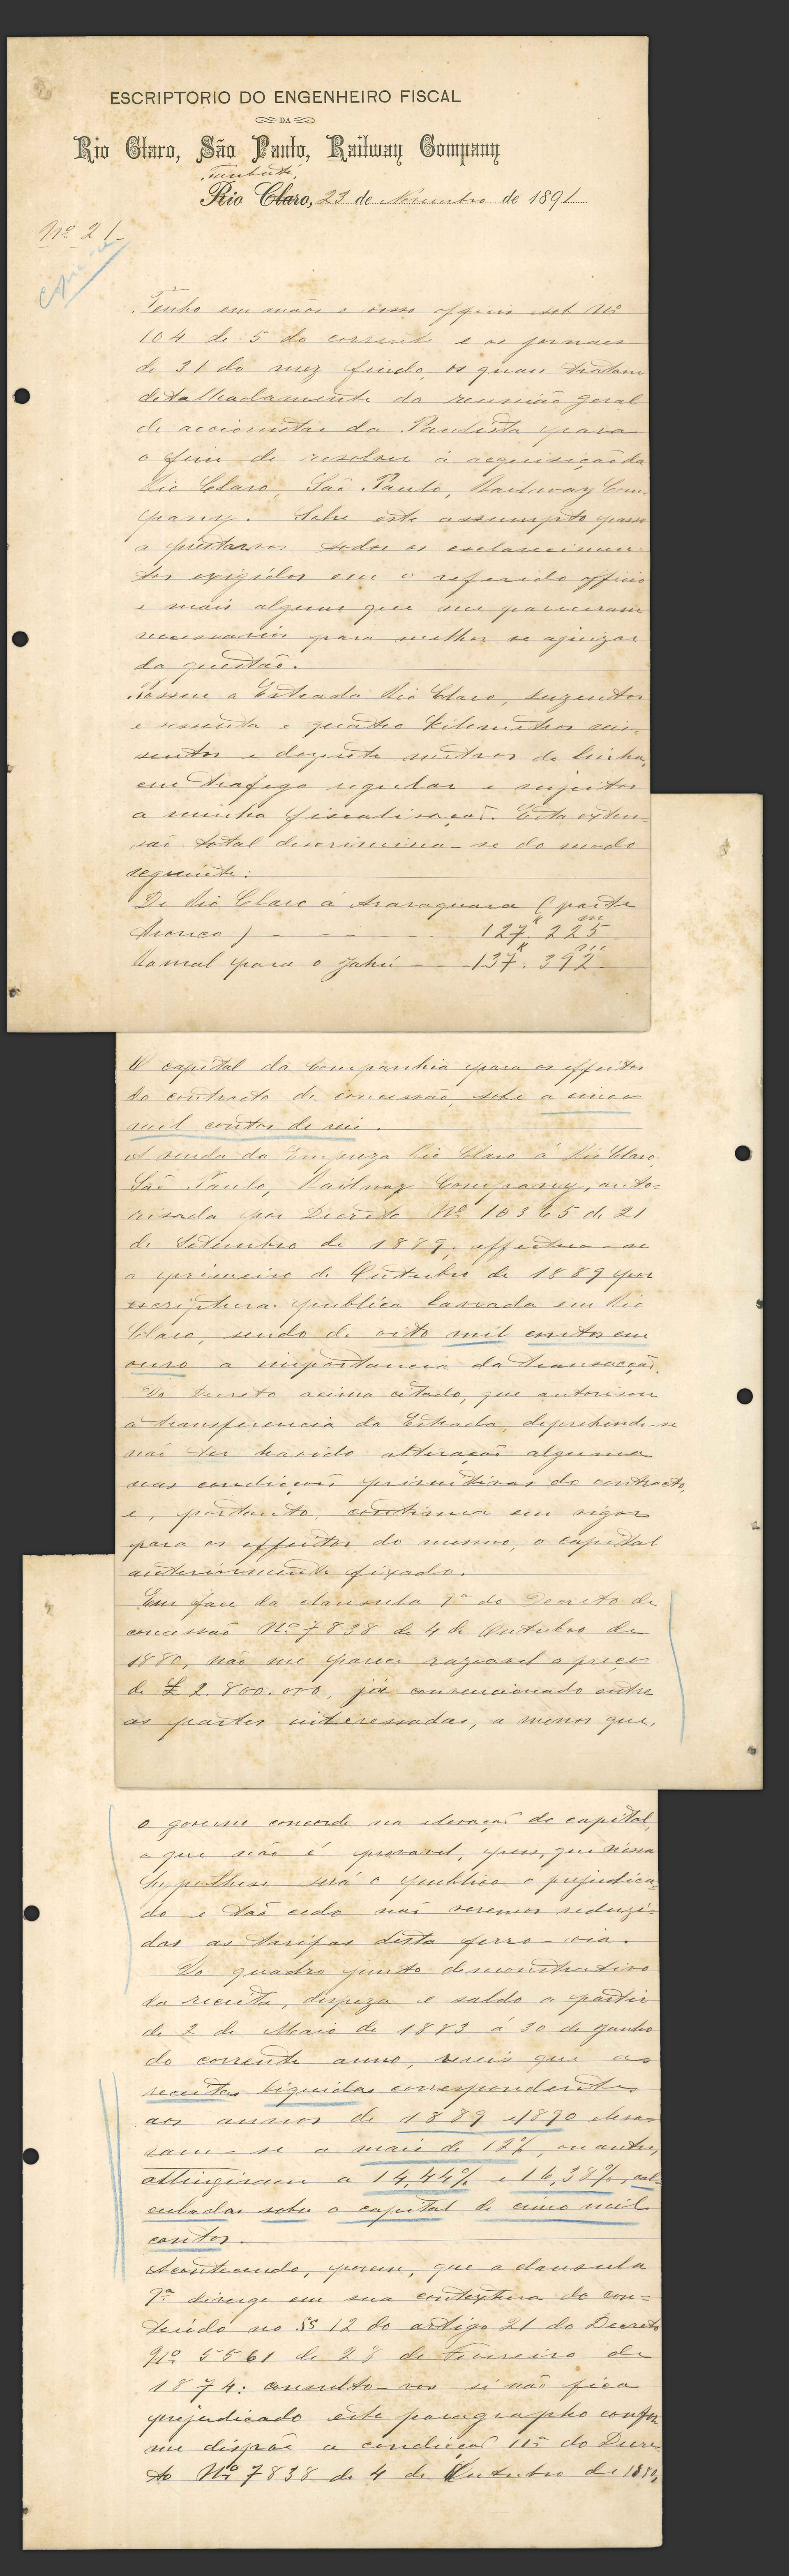 ESCRIPTORIO DO ENGENHEIRO FISCAL
DA
Rio Claro, São Paulo, Railway Company
Taubaté,
Rio Claro, 23 de Novembro de 1891
Nº 21
Copie-se
Tenho em mãos o vosso officio sob Nº
104 de 5 do corrente e os jornaes
de 31 do mez findo, os quaes tratam
detalhadamente da reunião geral
de accionistas da Paulista para
o fim de resolver á acquisição da
Rio Claro, São Paulo, Railway Com-
pany. Sobre este assumpto passo
a prestarvos todos os esclarecimen-
tos exigidos em o referido officio
e mais alguns que me pareceram
necessarios para melhor se ajuizar
da questão.
Possue a Estrada Rio Claro, duzentos
e sessenta e quatro kilometros seis-
centos e dezesete metros de linha,
em trafego regular e sujeitos
a minha fiscalisação. Esta exten-
são total descrimina-se do modo
seguinte:
De Rio Claro á Araraquara (parte
tronco) - - - - 127k. 225m
Ramal para o Jahú - - - 137k. 392m
O capital da Companhia para os effeitos
do contracto de concessão, sobe a cinco
mil contos de reis.
A venda da Empreza Rio Claro á Rio Claro,
São Paulo, Railway Company, auto-
risada por Decreto Nº 10365 de 21
de Setembro de 1889, effectuou-se
a primeiro de Outubro de 1889 por
escriptura publica lavrada em Rio
Claro, sendo de oito mil contos em
ouro a importancia da transacção.
Do Decreto acima citado, que autorisou
a transferencia da Estrada, deprehende-se
não ter havido alteração alguma
nas condições primitivas do contracto,
e, portanto, continua em vigor
para os effeitos do mesmo, o capital
anteriormente fixado.
Em face da clausula 9ª do Decreto de
concessão Nº 7838 de 4 de Outubro de
1880, não me parece razoavel o preço
de £ 2.800.000, já convencionado entre
as partes interessadas, a menos que,
o governo concorde na elevação do capital,
o que não é provavel, pois, que nessa
hypothese será o publico o prejudica-
do e tão cedo não veremos reduzi-
das as tarifas desta ferro-via.
Do quadro junto demonstrativo
da receita, despeza e saldo a partir
de 2 de Maio de 1883 á 30 de Junho
do corrente anno, vereis que as
receitas liquidas correspondentes
aos annos de 1889 e 1890 eleva-
ram-se a mais de 12%, ou antes,
attingiram a 14,44% e 16,38%, cal-
culadas sobre o capital de cinco mil
contos.
Acontecendo, porem, que a clausula
9ª diverge em sua contextura do con-
teúdo no §§ 12 do artigo 21 do Decreto
Nº 5561 de 28 de Fevereiro de
1874: consulto-vos si não fica
prejudicado este paragrapho confor-
me dispõe a condição 11ª do Decre-
to Nº 7838 de 4 de Outubro de 1880,